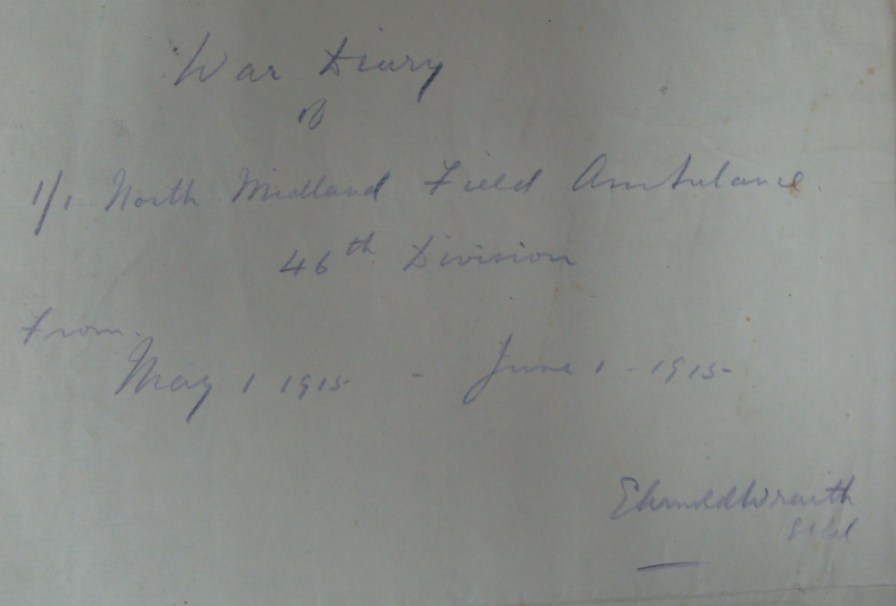 War Diary
of
1/1 North Midland Field Ambulance.
46th Division
from.
May 1 1915 - June 1 - 1915
Wraith